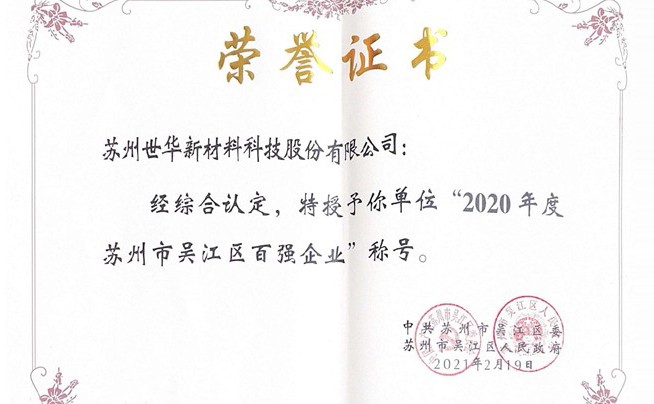 荣誉证书
苏州世华新材料科技股份有限公司：
经综合认定，特授予你单位“2020年度
苏州市吴江区百强企业”称号。
中共苏州市吴江区委
苏州市吴江区人民政府
2021年2月19日